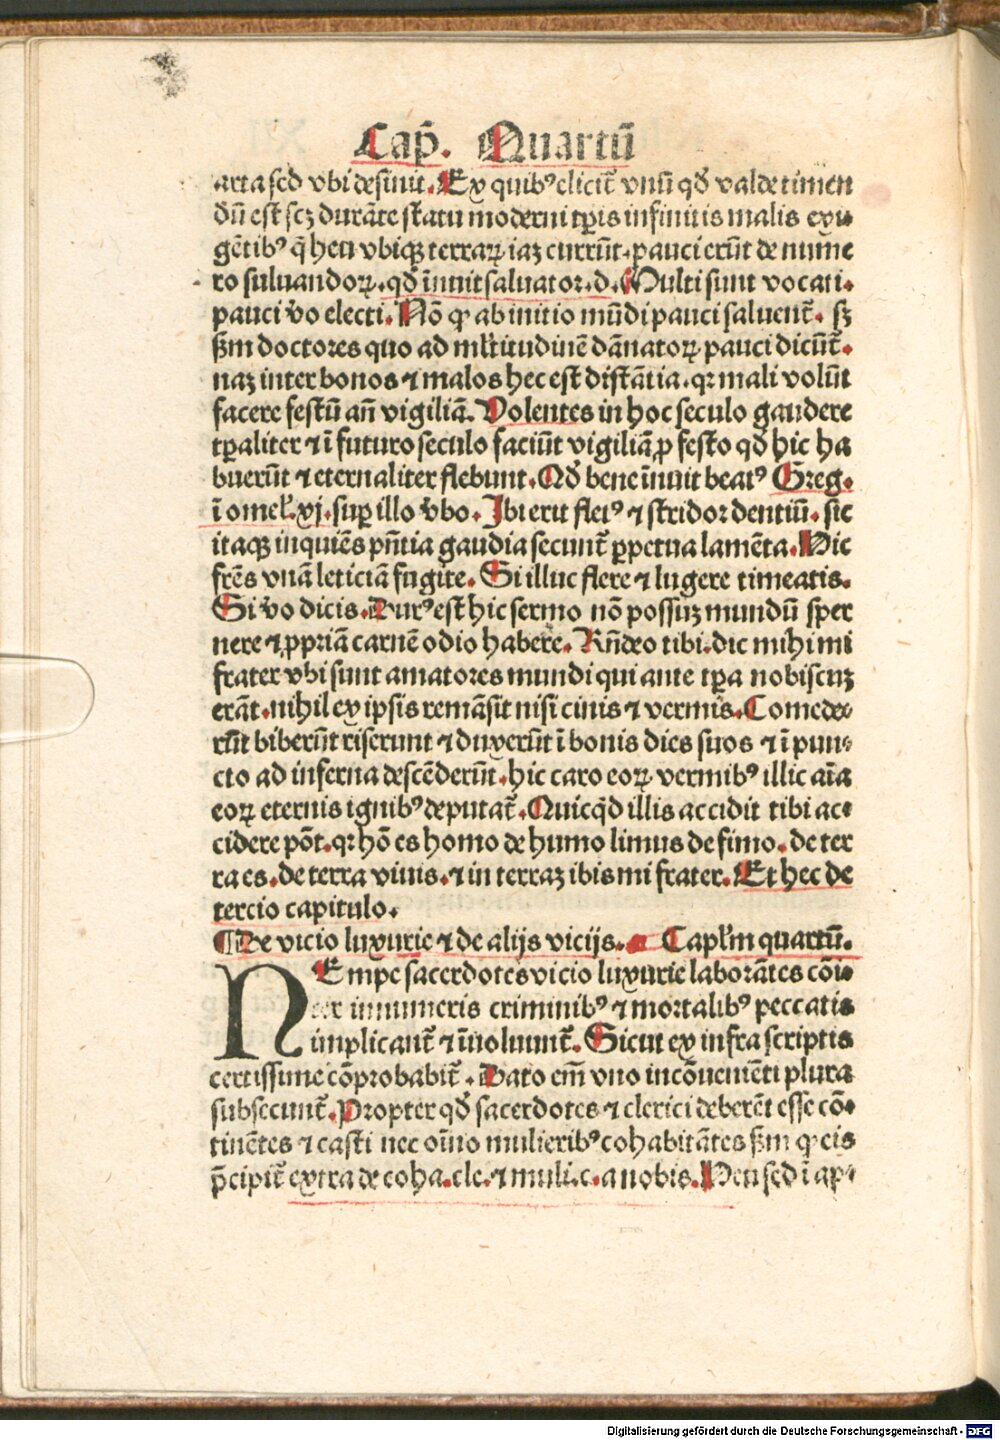 Cap̃. Quartū
arta sed vbi desinit. Ex quibꝰ elicit᷑ vnū qď valde timen
dū est scꝫ durāte statu moderni tp̄is infinitis malis exi-
gētibꝰ q̄ heu vbiqꝫ terraꝝ iaꝫ currūt. pauci erūt de nume
ro saluandoꝝ. qď īnuit saluator. d. Multi sunt vocati.
pauci v̄o electi. Nō ꝙ ab initio mūdi pauci saluent᷑. sꝫ
ẜm doctores quo ad ml̄titudinē dānatoꝝ pauci dicūt᷑.
naꝫ inter bonos ⁊ malos hec est distātia. qꝛ mali volūt
facere festū an̄ vigiliā. Volentes in hoc seculo gaudere
tp̄aliter ⁊ ī futuro seculo faciūt vigiliā ꝓ festo qď hic ha
buerūt ⁊ eternaliter flebunt. Qď bene īnuit beatꝰ Greg.
ī omel̓. xj. sup̱ illo v̄bo. Ibi erit fletꝰ ⁊ stridor dentiū. sic
itaqꝫ inquiēs pn̄tia gaudia secunt᷑ ꝑpetua lamēta. Hic
fr̄es vnā leticiā fugite. Si illuc flere ⁊ lugere timeatis.
Si v̄o dicis. Durꝰ est hic sermo nō possuꝫ mundū sper
nere ⁊ ꝓpriā carnē odio habere. Rn̄deo tibi. dic mihi mi
frater vbi sunt amatores mundi qui ante tp̄a nobiscuꝫ
erāt. nihil ex ipsis remāsit nisi cinis ⁊ vermis. Comede-
rūt biberūt riserunt ⁊ duxerūt ī bonis dies suos ⁊ ī pun-
cto ad inferna descēderūt. hic caro eoꝝ vermibꝰ illic aīa
eoꝝ eternis ignibꝰ deputat᷑. Quicq̄d illis accidit tibi ac-
cidere pōt. qꝛ hō es homo de humo limus de fimo. de ter
ra es. de terra viuis. ⁊ in terraꝫ ibis mi frater. Et hec de
tercio capitulo.
¶ De vicio luxurie ⁊ de alijs vicijs. Capl̄m quartū.
NEmpe sacerdotes vicio luxurie laborātes cōi-
ter innumeris criminibꝰ ⁊ mortalibꝰ peccatis
implicant᷑ ⁊ īuoluunt᷑. Sicut ex infra scriptis
certissime cōprobabit᷑. Dato em̄ vno incōueniēti plura
subsecunt᷑. Propter qď sacerdotes ⁊ clerici deberēt esse cō-
tinētes ⁊ casti nec oīno mulieribꝰ cohabitātes ẜm ꝙ eis
p̄cipit᷑ extra de coha. cle. ⁊ muli. c. a nobis. Heu sed ī ap-
Digitalisierung gefördert durch die Deutsche Forschungsgemeinschaft - DFG